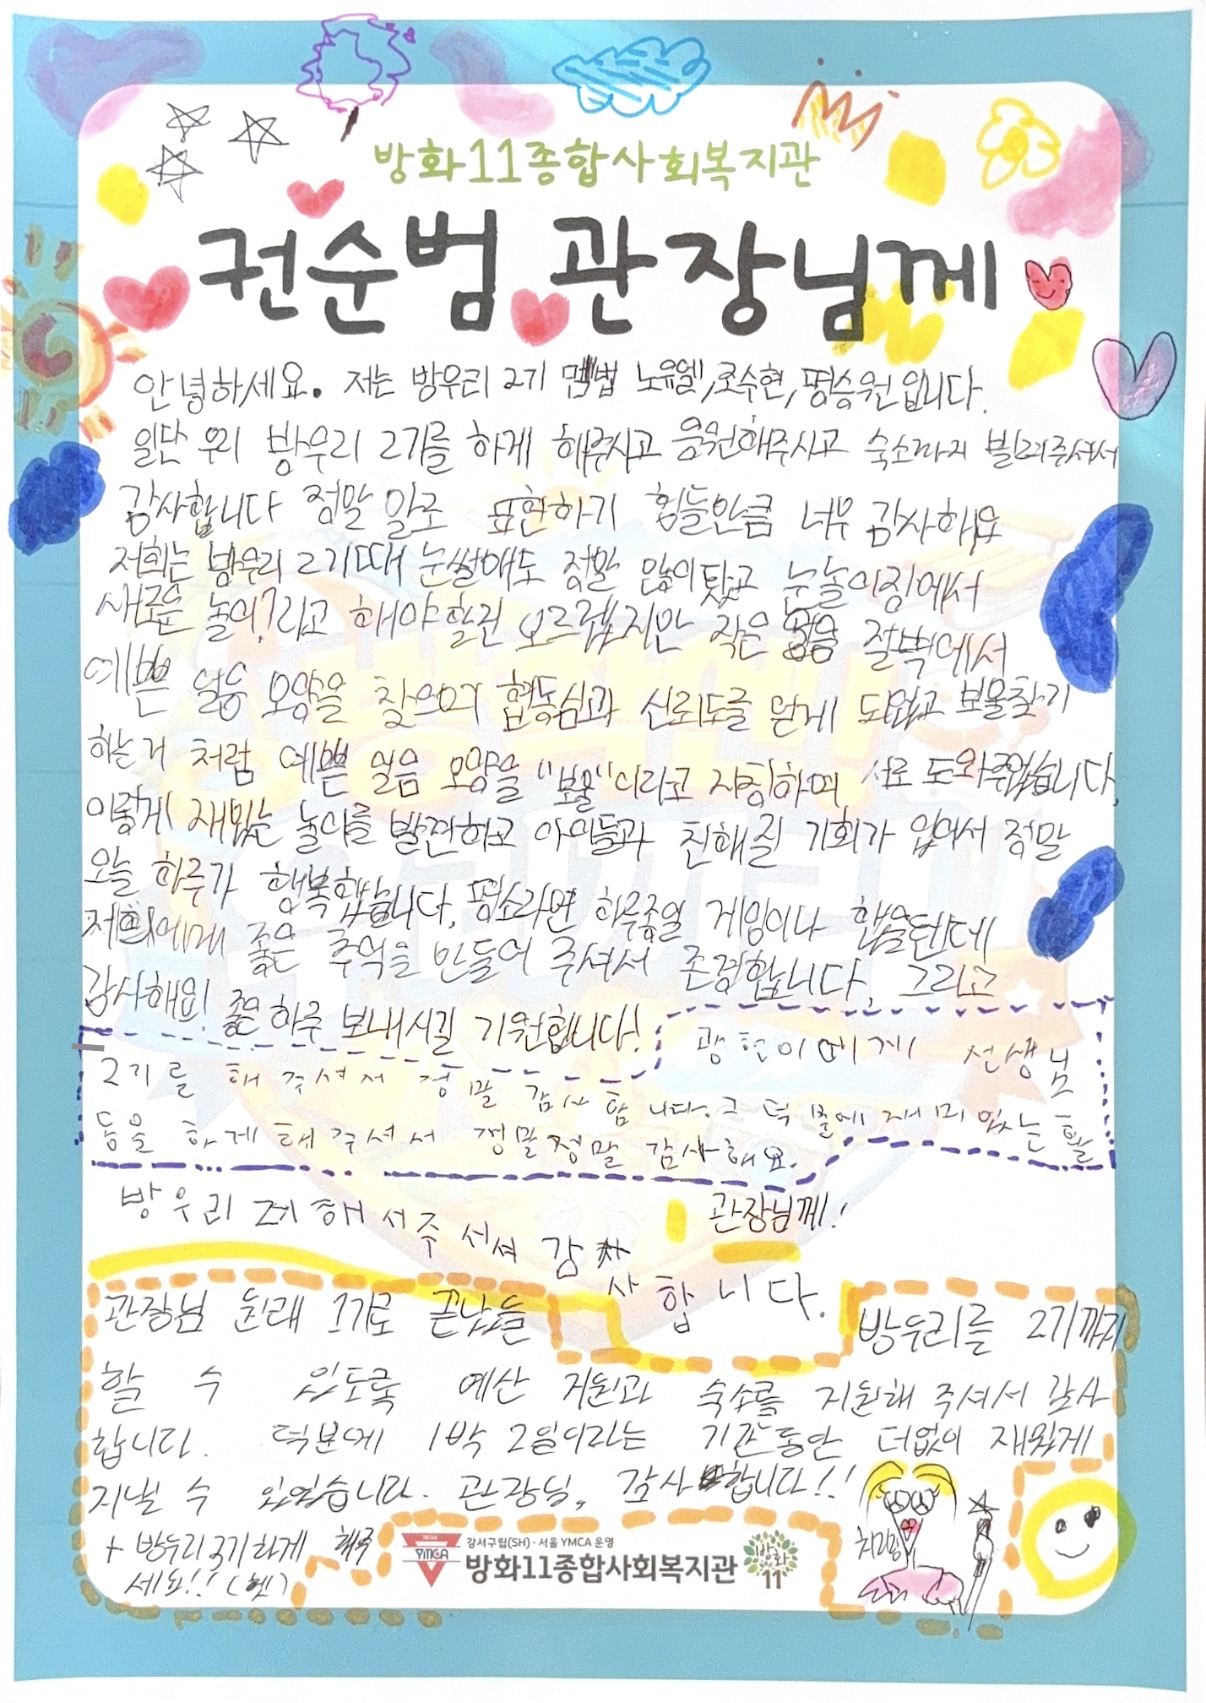 방화11종합사회복지관
권순범 관장님께
안녕하세요. 저는 방우리 2기 멤법 노유엘, 조수현, 평승원입니다.
일단 우리 방우리 2기를 하게 해주시고 응원해주시고 숙소까지 빌려주셔서
감사합니다 정말 말로 표현하기 힘들만큼 너무 감사해요
저희는 방우리 2기때 눈썰매도 정말 많이탔고 눈놀이장에서
새로운 놀이?라고 해야할진 모르겠지만 작은 얼음 절벽에서
예쁜 얼음 모양을 찾으며 협동심과 신뢰도를 얻게 되었고 보물찾기
하는거 처럼 예쁜 얼음 모양을 "보물"이라고 지칭하며 서로 도와주었습니다.
이렇게 재밌는 놀이를 발견하고 아이들과 친해질 기회가 있어서 정말
오늘 하루가 행복했습니다. 평소라면 하루종일 게임이나 했을텐데
저희에게 좋은 추억을 만들어 주셔서 존경합니다. 그리고
감사해요! 좋은 하루 보내시길 기원합니다!
광현이에게 선생님
2기를 해주셔서 정말 감사합니다. 그 덕분에 재미있는 활
동을 하게해주셔서 정말정말 감사해요.
방우리 해주셔서 감사합니다.
관장님께!
관장님 원래 1기로 끝났을 방우리를 2기까지
할 수 있도록 예산 지원과 숙소를 지원해 주셔서 감사
합니다. 덕분에 1박 2일이라는 기간동안 더없이 재밌게
지낼 수 있었습니다. 관장님, 감사합니다!!
+ 방우리 3기하게 해주
세요!! (헷)
YMCA
강서구립(SH)·서울 YMCA 운영
방화11종합사회복지관
방화
11